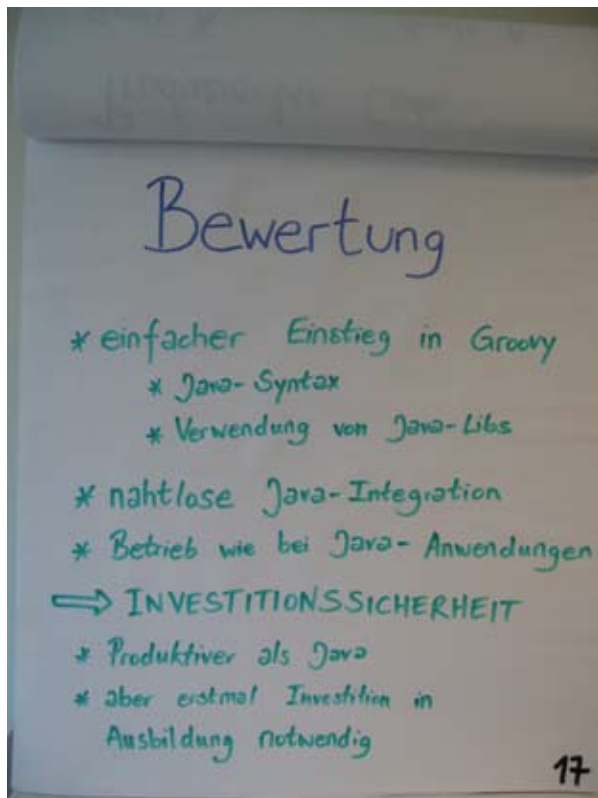 Bewertung
* einfacher Einstieg in Groovy
* Java-Syntax
* Verwendung von Java-Libs
* nahtlose Java-Integration
* Betrieb wie bei Java-Anwendungen
⇒ INVESTITIONSSICHERHEIT
* Produktiver als Java
* aber erstmal Investition in
Ausbildung notwendig
17